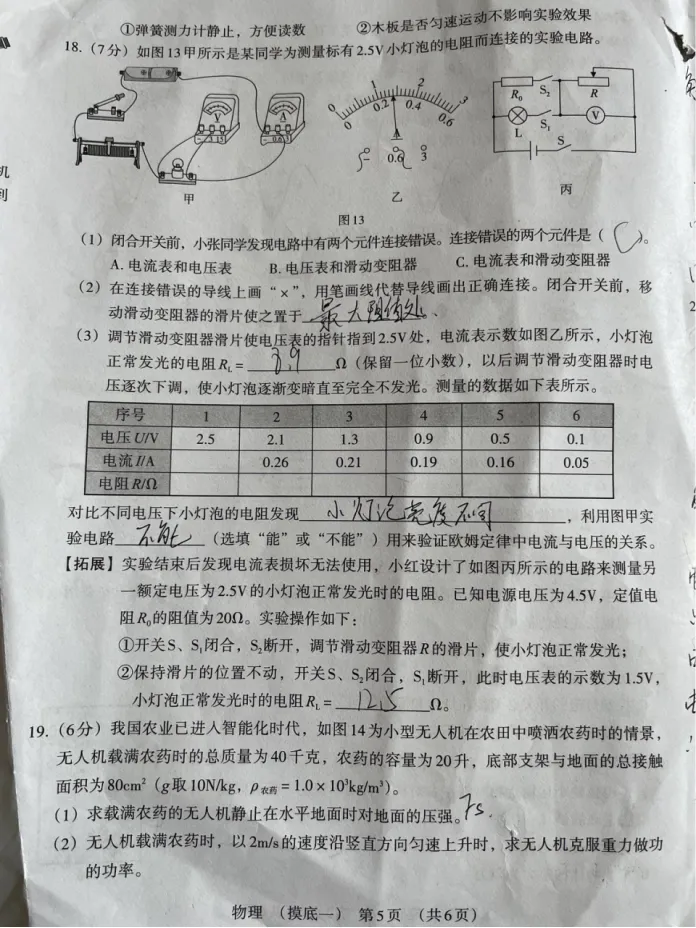 ①弹簧测力计静止，方便读数 ②木板是否匀速运动不影响实验效果
18.（7分）如图13甲所示是某同学为测量标有2.5V小灯泡的电阻而连接的实验电路。
0 1 2 3
0 0.2 0.4 0.6
A
V A
− 0.6 3
R₀ S₂ R
L S₁ V
S
甲 乙 丙
图13
（1）闭合开关前，小张同学发现电路中有两个元件连接错误。连接错误的两个元件是（ C ）。
A. 电流表和电压表 B. 电压表和滑动变阻器 C. 电流表和滑动变阻器
（2）在连接错误的导线上画“×”，用笔画线代替导线画出正确连接。闭合开关前，移
动滑动变阻器的滑片使之置于 最大阻值处 、
（3）调节滑动变阻器滑片使电压表的指针指到2.5V处，电流表示数如图乙所示，小灯泡
正常发光的电阻R_L = 8.9 Ω（保留一位小数），以后调节滑动变阻器时电
压逐次下调，使小灯泡逐渐变暗直至完全不发光。测量的数据如下表所示。
序号 1 2 3 4 5 6
电压U/V 2.5 2.1 1.3 0.9 0.5 0.1
电流I/A 0.26 0.21 0.19 0.16 0.05
电阻R/Ω
对比不同电压下小灯泡的电阻发现 小灯泡亮度不同 ，利用图甲实
验电路 不能 （选填“能”或“不能”）用来验证欧姆定律中电流与电压的关系。
【拓展】实验结束后发现电流表损坏无法使用，小红设计了如图丙所示的电路来测量另
一额定电压为2.5V的小灯泡正常发光时的电阻。已知电源电压为4.5V，定值电
阻R₀的阻值为20Ω。实验操作如下：
①开关S、S₁闭合，S₂断开，调节滑动变阻器R的滑片，使小灯泡正常发光；
②保持滑片的位置不动，开关S、S₂闭合，S₁断开，此时电压表的示数为1.5V，
小灯泡正常发光时的电阻R_L = 12.5 Ω。
19.（6分）我国农业已进入智能化时代，如图14为小型无人机在农田中喷洒农药时的情景，
无人机载满农药时的总质量为40千克，农药的容量为20升，底部支架与地面的总接触
面积为80cm²（g取10N/kg，ρ农药 = 1.0×10³kg/m³）。
（1）求载满农药的无人机静止在水平地面时对地面的压强。
（2）无人机载满农药时，以2m/s的速度沿竖直方向匀速上升时，求无人机克服重力做功
的功率。
物理 （摸底一） 第5页 （共6页）